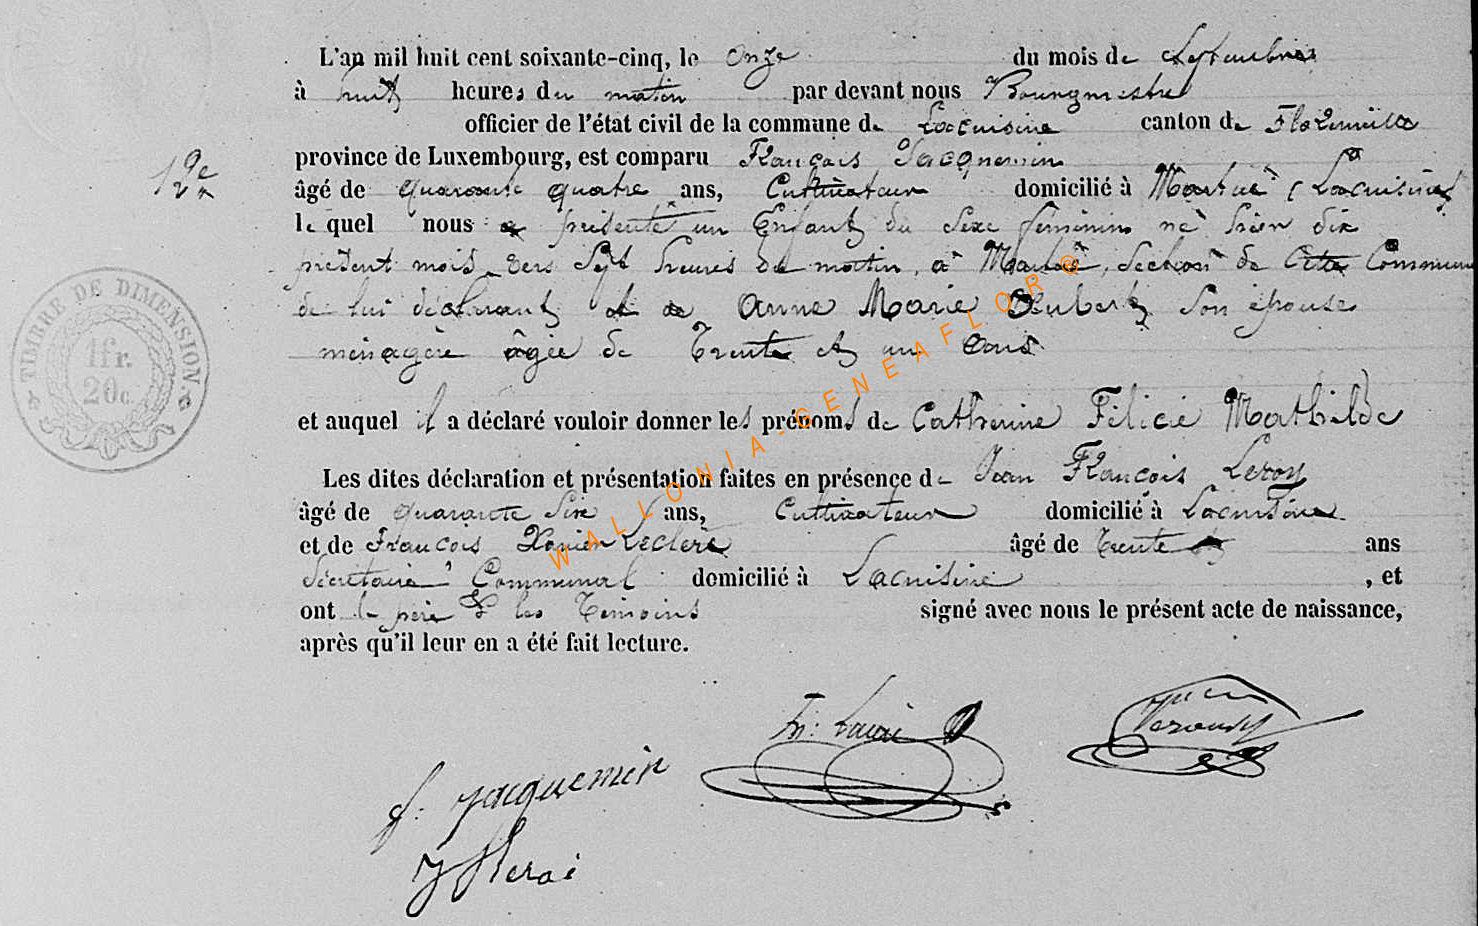 L'an mil huit cent soixante-cinq, le onze du mois de Septembre
à huit heures du matin par devant nous Bourgmestre
officier de l'état civil de la commune de Lacuisine canton de Florenville
province de Luxembourg, est comparu François Jacquemin
19e
âgé de quarante quatre ans, Cultivateur domicilié à Martué (Lacuisine)
le quel nous a présenté un Enfant du Sexe féminin né hier dix
présent mois, vers Sept heures du matin, à Martué, Section de Cette Commune
de lui déclarant et de Anne Marie Hubert Son épouse
ménagère âgée de Trente et un ans
TIMBRE DE DIMENSION
1fr.
20c.
et auquel il a déclaré vouloir donner les prénoms de Catherine Félicie Mathilde
Les dites déclaration et présentation faites en présence de Jean François Leroy
âgé de quarante Six ans, Cultivateur domicilié à Lacuisine
et de François Xavier Leclere âgé de trente ans
Secrétaire Communal domicilié à Lacuisine , et
ont le père & les Témoins signé avec nous le présent acte de naissance,
après qu'il leur en a été fait lecture.
f. jacquemin
WALLONIA-GENEAFLOR@